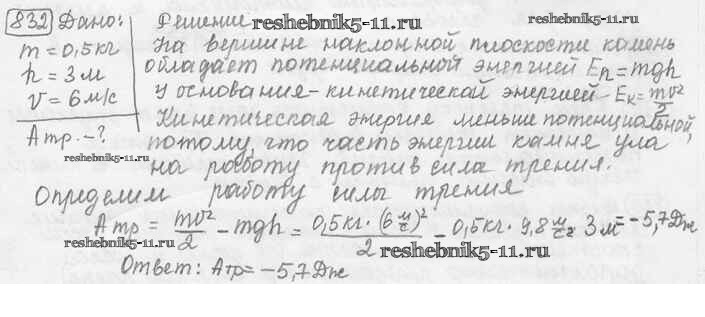 832 Дано: Решение reshebnik5-11.ru
m = 0,5 кг На вершине наклонной плоскости камень
h = 3 м обладает потенциальной энергией Eп = mgh
v = 6 м/с у основания - кинетической энергией Eк = mv²/2
Aтр. - ? Кинетическая энергия меньше потенциальной,
потому, что часть энергии камня ула
reshebnik5-11.ru на работу против сила трения.
Определим работу силы трения
Aтр = mv²/2 - mgh = 0,5кг · (6 м/с)²/2 - 0,5кг · 9,8 м/с² 3 м = -5,7 Дж
reshebnik5-11.ru reshebnik5-11.ru
Ответ: Aтр = -5,7 Дж